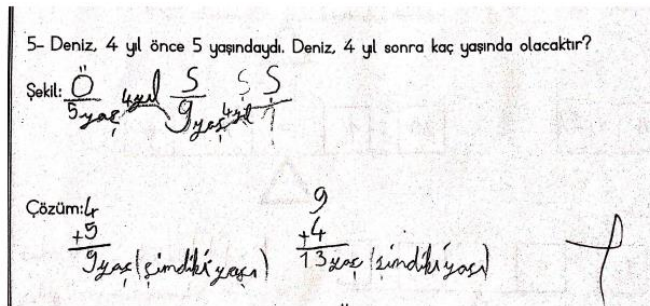 5- Deniz, 4 yıl önce 5 yaşındaydı. Deniz, 4 yıl sonra kaç yaşında olacaktır?
Şekil: Ö 4yıl S Ş S
5yaş 9yaş 4yıl ?
Çözüm: 4 9
+5 +4
9yaş (şimdiki yaşı) 13yaş (şimdiki yaşı)